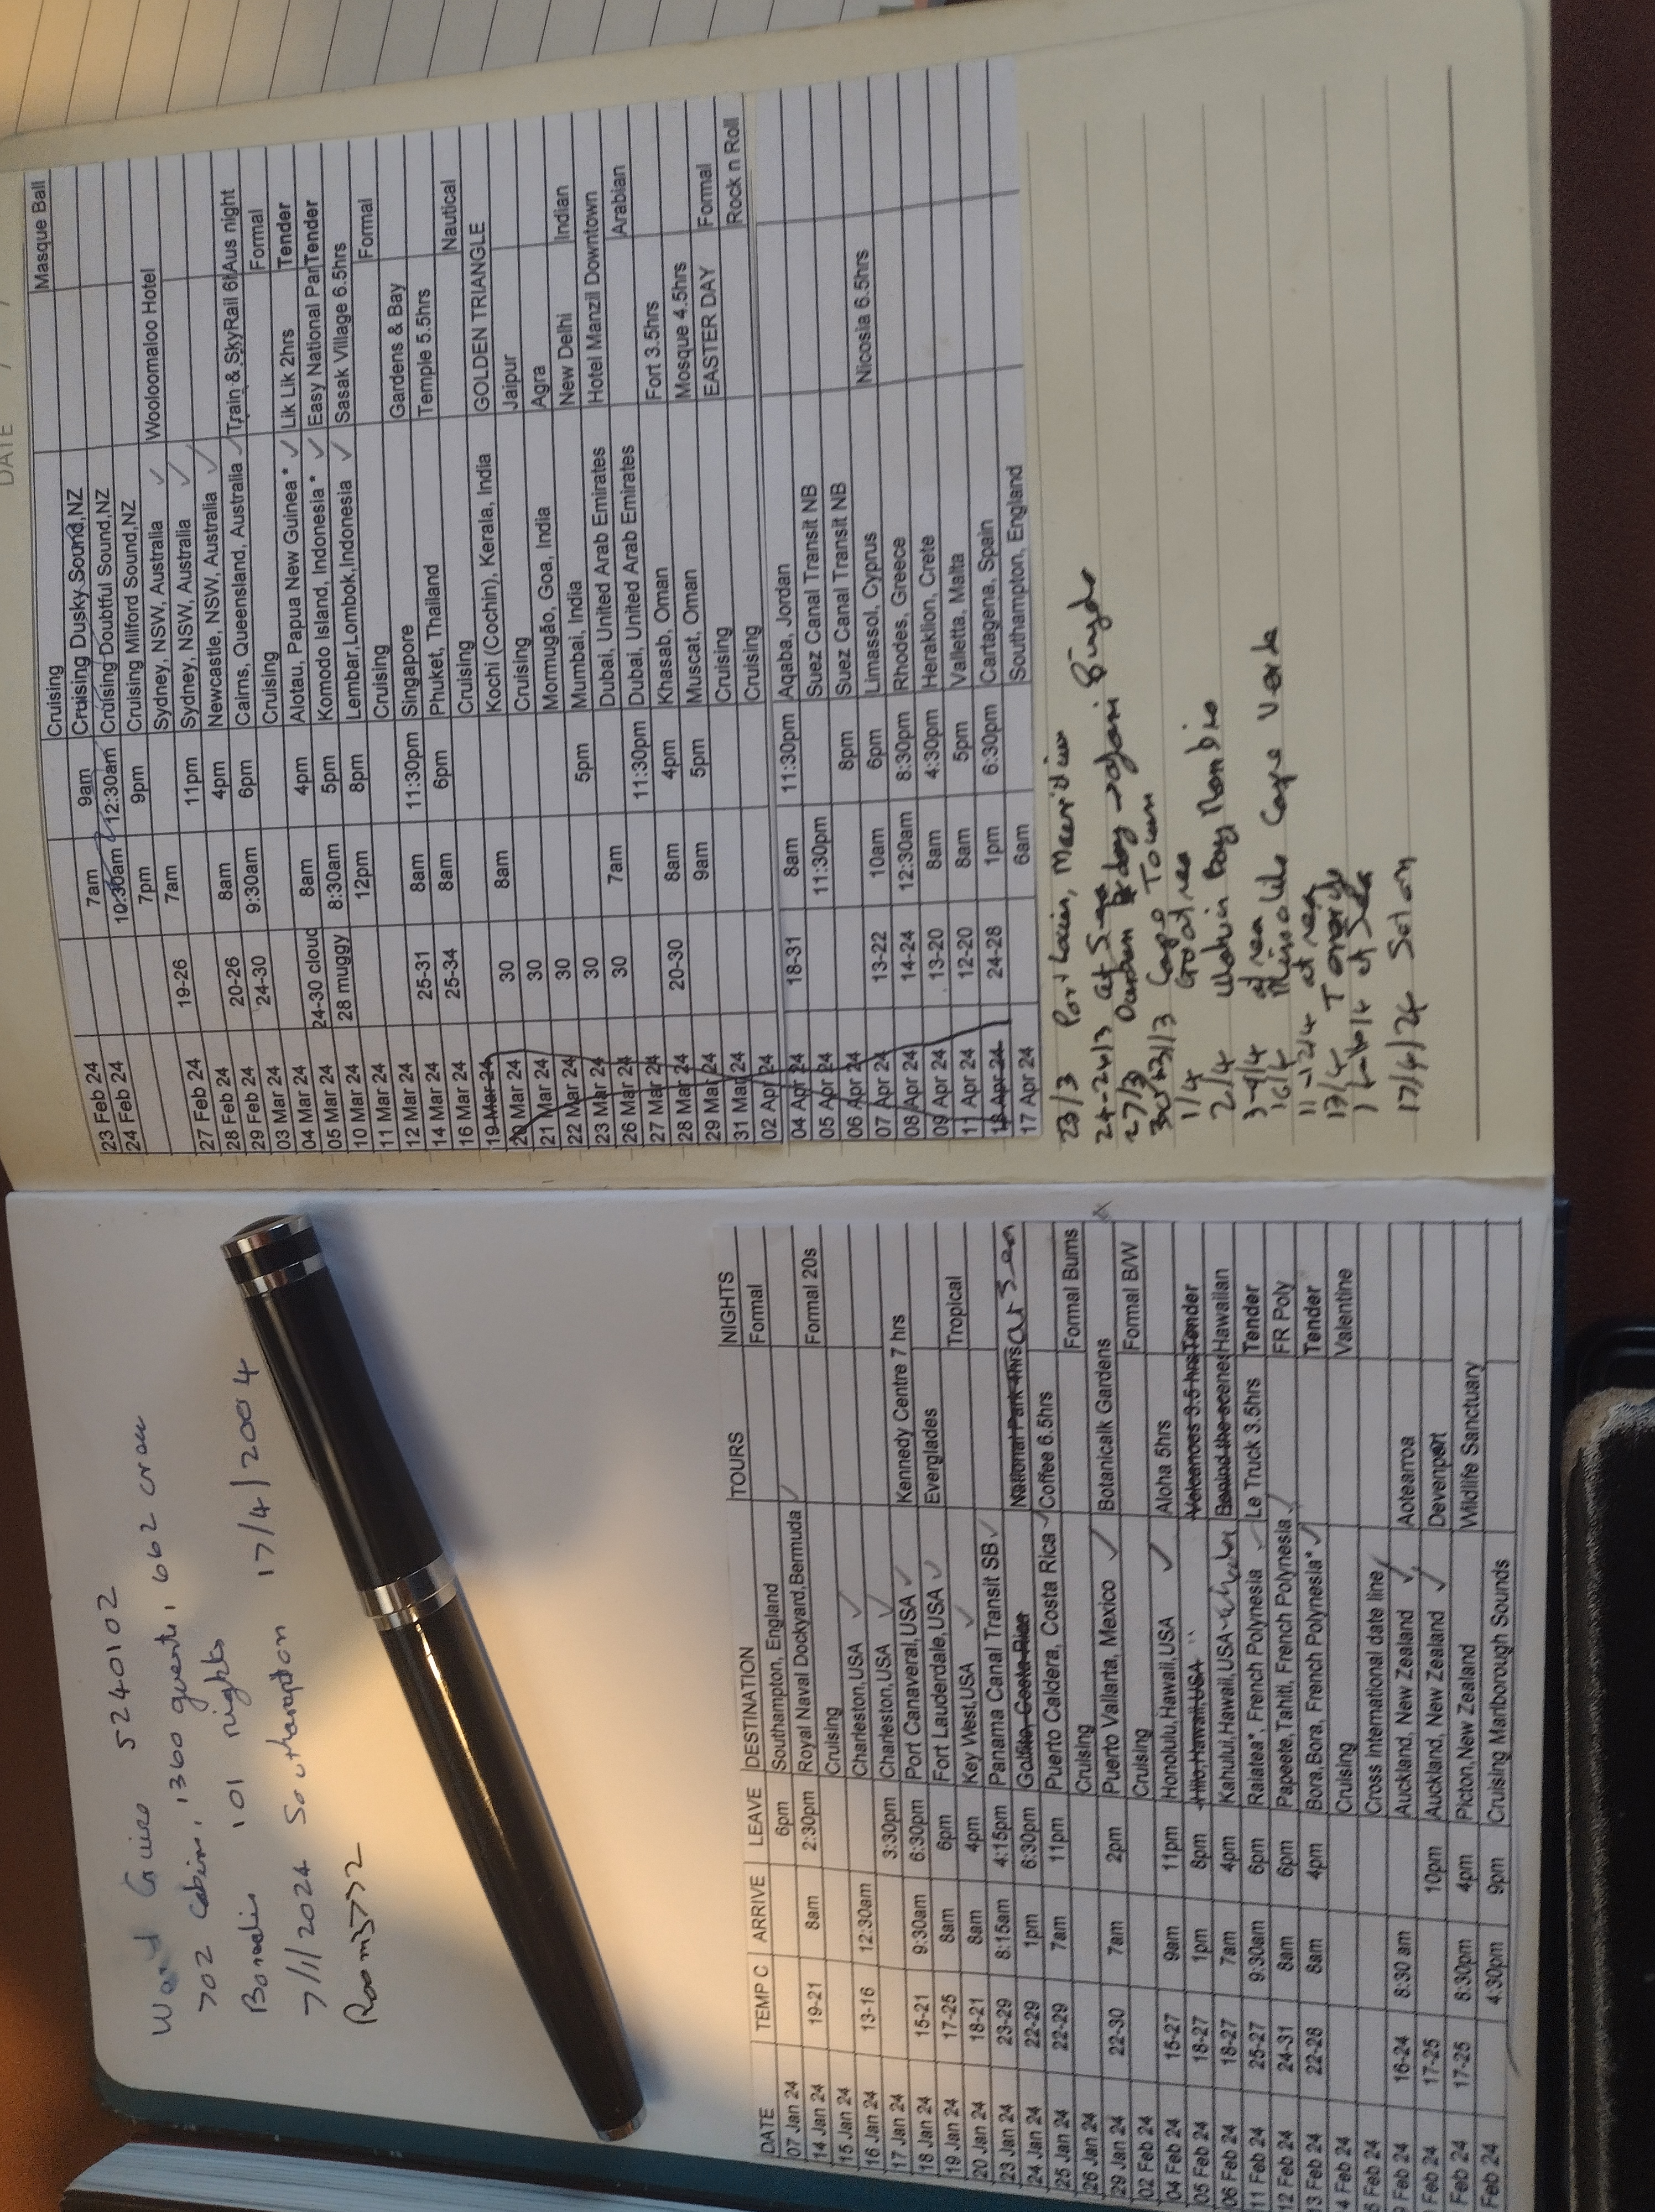 World Cruise S240102
702 cabins, 1360 guests, 662 crew
Borealis 101 nights
7/1/2024 Southampton 17/4/2004
Room
DATE TEMP C ARRIVE LEAVE DESTINATION TOURS NIGHTS
07 Jan 24 6pm Southampton, England Formal
14 Jan 24 19-21 8am 2:30pm Royal Naval Dockyard,Bermuda Formal 20s
15 Jan 24 Cruising
16 Jan 24 13-16 12:30am Charleston,USA
17 Jan 24 3:30pm Charleston,USA
18 Jan 24 15-21 9:30am 6:30pm Port Canaveral,USA Kennedy Centre 7 hrs
19 Jan 24 17-25 8am 6pm Fort Lauderdale,USA Everglades
20 Jan 24 18-21 8am 4pm Key West,USA Tropical
23 Jan 24 23-29 8:15am 4:15pm Panama Canal Transit SB
24 Jan 24 22-29 1pm 6:30pm Golfito, Costa Rica National Park 4hrs at Sea
25 Jan 24 22-29 7am 11pm Puerto Caldera, Costa Rica Coffee 6.5hrs
26 Jan 24 Cruising Formal Burns
29 Jan 24 22-30 7am 2pm Puerto Vallarta, Mexico Botanicalk Gardens
02 Feb 24 Cruising Formal B/W
04 Feb 24 15-27 9am 11pm Honolulu,Hawaii,USA Aloha 5hrs
05 Feb 24 18-27 1pm 8pm Hilo,Hawaii,USA Volcanoes 3.5 hrs Tender
06 Feb 24 18-27 7am 4pm Kahului,Hawaii,USA Behind the scenes Hawaiian
11 Feb 24 25-27 9:30am 6pm Raiatea*, French Polynesia Le Truck 3.5hrs Tender
12 Feb 24 24-31 8am 6pm Papeete,Tahiti, French Polynesia FR Poly
13 Feb 24 22-28 8am 4pm Bora,Bora, French Polynesia* Tender
4 Feb 24 Cruising Valentine
6 Feb 24 Cross international date line
9 Feb 24 16-24 8:30 am Auckland, New Zealand Aotearoa
Feb 24 17-25 10pm Auckland, New Zealand Devenport
Feb 24 17-25 8:30pm 4pm Picton,New Zealand Wildlife Sanctuary
Feb 24 4:30pm 9pm Cruising Marlborough Sounds
DATE
Cruising Masque Ball
23 Feb 24 7am 9am Cruising Dusky Sound,NZ
24 Feb 24 10:30am 12:30am Cruising Doubtful Sound,NZ
7pm 9pm Cruising Milford Sound,NZ
19-26 7am Sydney, NSW, Australia Wooloomaloo Hotel
27 Feb 24 11pm Sydney, NSW, Australia
28 Feb 24 20-26 8am 4pm Newcastle, NSW, Australia
29 Feb 24 24-30 9:30am 6pm Cairns, Queensland, Australia Train & SkyRail 6h Aus night
03 Mar 24 Cruising Formal
04 Mar 24 24-30 cloud 8am 4pm Alotau, Papua New Guinea * Lik Lik 2hrs Tender
05 Mar 24 28 muggy 8:30am 5pm Komodo Island, Indonesia * Easy National Par Tender
10 Mar 24 12pm 8pm Lembar,Lombok,Indonesia Sasak Village 6.5hrs
11 Mar 24 Cruising Formal
12 Mar 24 25-31 8am 11:30pm Singapore Gardens & Bay
14 Mar 24 25-34 8am 6pm Phuket, Thailand Temple 5.5hrs
16 Mar 24 Cruising Nautical
19 Mar 24 30 8am Kochi (Cochin), Kerala, India GOLDEN TRIANGLE
20 Mar 24 30 Cruising Jaipur
21 Mar 24 30 Mormugão, Goa, India Agra
22 Mar 24 30 5pm Mumbai, India New Delhi Indian
23 Mar 24 30 7am Dubai, United Arab Emirates Hotel Manzil Downtown
26 Mar 24 11:30pm Dubai, United Arab Emirates Arabian
27 Mar 24 20-30 8am 4pm Khasab, Oman Fort 3.5hrs
28 Mar 24 9am 5pm Muscat, Oman Mosque 4.5hrs
29 Mar 24 Cruising EASTER DAY Formal
31 Mar 24 Cruising Rock n Roll
02 Apr 24
04 Apr 24 18-31 8am 11:30pm Aqaba, Jordan
05 Apr 24 11:30pm Suez Canal Transit NB
06 Apr 24 8pm Suez Canal Transit NB
07 Apr 24 13-22 10am 6pm Limassol, Cyprus Nicosia 6.5hrs
08 Apr 24 14-24 12:30am 8:30pm Rhodes, Greece
09 Apr 24 13-20 8am 4:30pm Heraklion, Crete
11 Apr 24 12-20 8am 5pm Valletta, Malta
13 Apr 24 24-28 1pm 6:30pm Cartagena, Spain
17 Apr 24 6am Southampton, England
23/3 Port Louis, Mauritius
24-26/3 at Sea
27/3 Durban day
30/31/3 Cape Town
1/4 at sea
2/4 Walvis Bay Namibia
3-9/4 at sea
10/4 Mindelo Cape Verde
11-12/4 at sea
13/4 Tenerife
14-16/4 at Sea
17/4/24 Soton